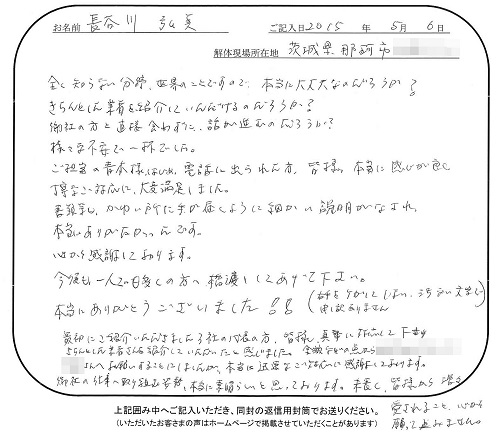 お名前 長谷川 弘美 ご記入日 2015 年 5月 6日
解体現場所在地 茨城県那珂市
全く知らない分野、世界のことですので、本当に大丈夫なのだろうか?
きちんとした業者を紹介していただけるのだろうか?
御社の方と直接会わずに、話が進むのだろうか?
様々な不安で一杯でした。
ご担当の青木様はじめ、電話に出られた方、皆様、本当に感じが良く
丁寧なご対応に、大変満足しました。
かゆい所に手が届くように細かい説明がなされ、
本当にありがたかったです。
心から感謝しております。
今後も一人でも多くの方へ橋渡しをしてあげて下さい。
本当にありがとうございました!!
申し訳ありません
最初にご紹介いただきました3社の代表の方、皆様、真摯に対応して下さり
きちんとした業者さんを紹介していただいたと感じました。金額などの点から
さんへお願いすることにしましたが、本当に迅速なご対応に感謝しております。
御社の仕事へ取り組む姿勢、本当に素晴らしいと思っております。末長く、皆様から
愛されること、心から
願って止みません。
上記囲み中へご記入いただき、同封の返信用封筒でお送りください。
(いただいたお客さまの声はホームページで掲載させていただくことがあります)